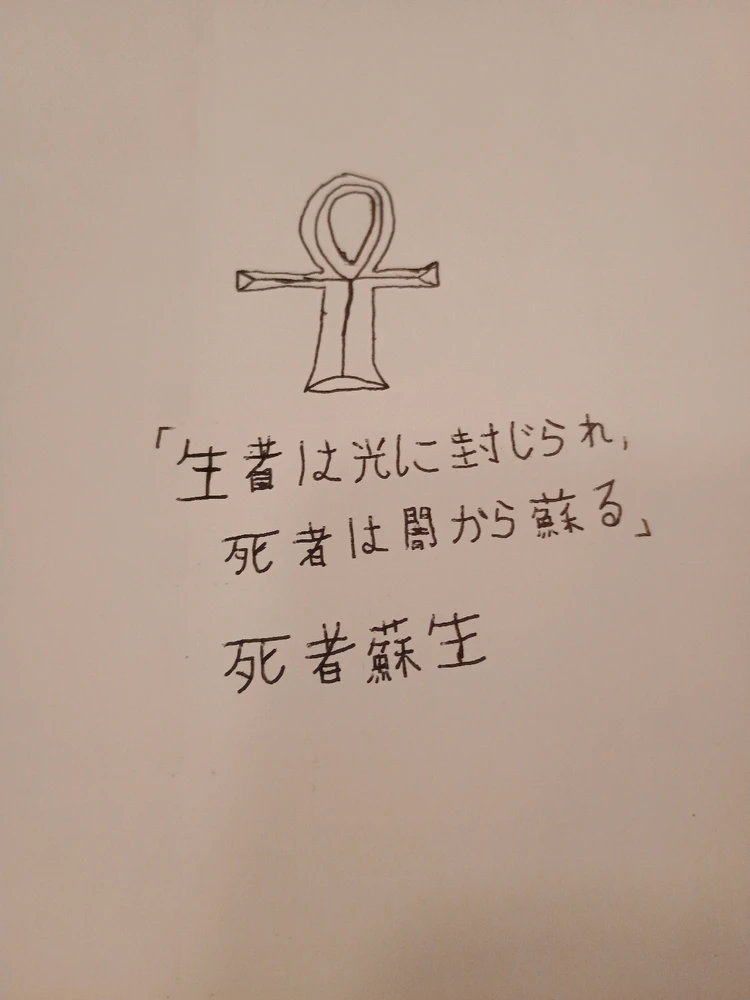 「生者は光に封じられ,
死者は闇から蘇る」
死者蘇生